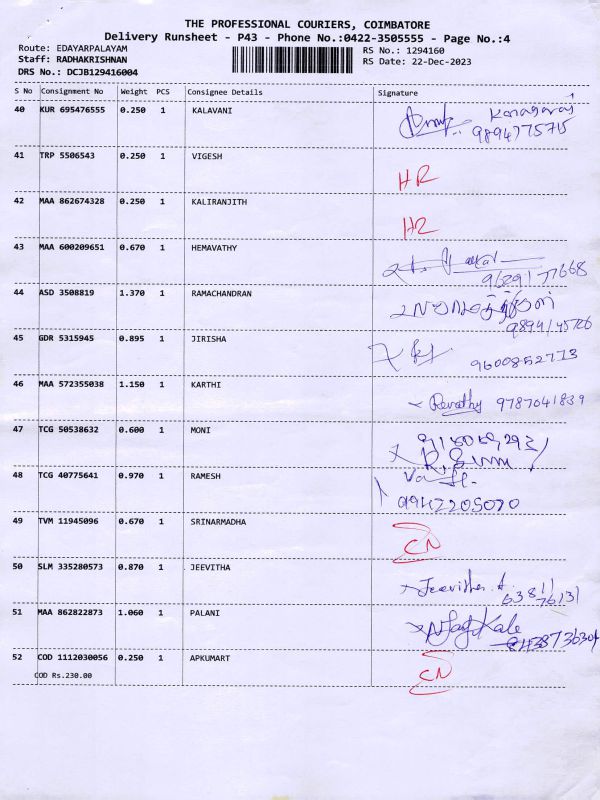 THE PROFESSIONAL COURIERS, COIMBATORE
Delivery Runsheet - P43 - Phone No.:0422-3505555 - Page No.:4
Route: EDAYARPALAYAM RS No.: 1294160
Staff: RADHAKRISHNAN RS Date: 22-Dec-2023
DRS No.: DCJB129416004
S No Consignment No Weight PCS Consignee Details Signature
40 KUR 695476555 0.250 1 KALAVANI Kanagaraj
9894775715
41 TRP 5506543 0.250 1 VIGESH HR
42 MAA 862674328 0.250 1 KALIRANJITH HR
43 MAA 600209651 0.670 1 HEMAVATHY
9629177668
44 ASD 3508819 1.370 1 RAMACHANDRAN
45 GDR 5315945 0.895 1 JIRISHA 9600852773
46 MAA 572355038 1.150 1 KARTHI Revathy 9787041839
47 TCG 50538632 0.600 1 MONI
48 TCG 40775641 0.970 1 RAMESH
49 TVM 11945096 0.670 1 SRINARMADHA CN
50 SLM 335280573 0.870 1 JEEVITHA Jeevitha
51 MAA 862822873 1.060 1 PALANI
52 COD 1112030056 0.250 1 APKUMART CN
COD Rs.230.00